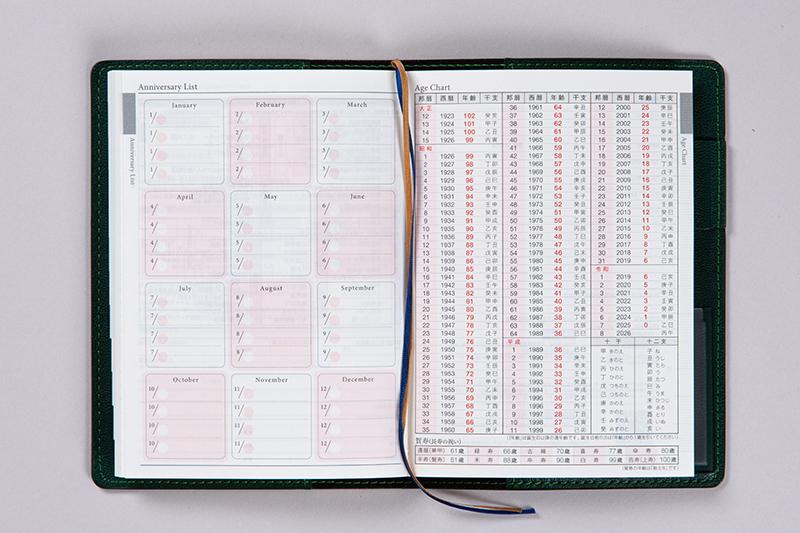 Anniversary List
January
1/
1/
1/
1/
February
2/
2/
2/
2/
March
3/
3/
3/
3/
April
4/
4/
4/
4/
May
5/
5/
5/
5/
June
6/
6/
6/
6/
July
7/
7/
7/
7/
August
8/
8/
8/
8/
September
9/
9/
9/
9/
October
10/
10/
10/
10/
November
11/
11/
11/
11/
December
12/
12/
12/
12/
Anniversary List
Age Chart
邦暦 西暦 年齢 干支
大正
12 1923 102 癸亥
13 1924 101 甲子
14 1925 100 乙丑
15 1926 99 丙寅
昭和
1 1926 99 丙寅
2 1927 98 丁卯
3 1928 97 戊辰
4 1929 96 己巳
5 1930 95 庚午
6 1931 94 辛未
7 1932 93 壬申
8 1933 92 癸酉
9 1934 91 甲戌
10 1935 90 乙亥
11 1936 89 丙子
12 1937 88 丁丑
13 1938 87 戊寅
14 1939 86 己卯
15 1940 85 庚辰
16 1941 84 辛巳
17 1942 83 壬午
18 1943 82 癸未
19 1944 81 甲申
20 1945 80 乙酉
21 1946 79 丙戌
22 1947 78 丁亥
23 1948 77 戊子
24 1949 76 己丑
25 1950 75 庚寅
26 1951 74 辛卯
27 1952 73 壬辰
28 1953 72 癸巳
29 1954 71 甲午
30 1955 70 乙未
31 1956 69 丙申
32 1957 68 丁酉
33 1958 67 戊戌
34 1959 66 己亥
35 1960 65 庚子
邦暦 西暦 年齢 干支
36 1961 64 辛丑
37 1962 63 壬寅
38 1963 62 癸卯
39 1964 61 甲辰
40 1965 60 乙巳
41 1966 59 丙午
42 1967 58 丁未
43 1968 57 戊申
44 1969 56 己酉
45 1970 55 庚戌
46 1971 54 辛亥
47 1972 53 壬子
48 1973 52 癸丑
49 1974 51 甲寅
50 1975 50 乙卯
51 1976 49 丙辰
52 1977 48 丁巳
53 1978 47 戊午
54 1979 46 己未
55 1980 45 庚申
56 1981 44 辛酉
57 1982 43 壬戌
58 1983 42 癸亥
59 1984 41 甲子
60 1985 40 乙丑
61 1986 39 丙寅
62 1987 38 丁卯
63 1988 37 戊辰
64 1989 36 己巳
平成
1 1989 36 己巳
2 1990 35 庚午
3 1991 34 辛未
4 1992 33 壬申
5 1993 32 癸酉
6 1994 31 甲戌
7 1995 30 乙亥
8 1996 29 丙子
9 1997 28 丁丑
10 1998 27 戊寅
11 1999 26 己卯
邦暦 西暦 年齢 干支
12 2000 25 庚辰
13 2001 24 辛巳
14 2002 23 壬午
15 2003 22 癸未
16 2004 21 甲申
17 2005 20 乙酉
18 2006 19 丙戌
19 2007 18 丁亥
20 2008 17 戊子
21 2009 16 己丑
22 2010 15 庚寅
23 2011 14 辛卯
24 2012 13 壬辰
25 2013 12 癸巳
26 2014 11 甲午
27 2015 10 乙未
28 2016 9 丙申
29 2017 8 丁酉
30 2018 7 戊戌
31 2019 6 己亥
令和
1 2019 6 己亥
2 2020 5 庚子
3 2021 4 辛丑
4 2022 3 壬寅
5 2023 2 癸卯
6 2024 1 甲辰
7 2025 0 乙巳
8 2026 丙午
十干
甲 きのえ
乙 きのと
丙 ひのえ
丁 ひのと
戊 つちのえ
己 つちのと
庚 かのえ
辛 かのと
壬 みずのえ
癸 みずのと
十二支
子 ね
丑 うし
寅 とら
卯 う
辰 たつ
巳 み
午 うま
未 ひつじ
申 さる
酉 とり
戌 いぬ
亥 い
(「年齢」は誕生日以降の満年齢です。誕生日前の方は「年齢」から1歳を引いてください)
賀寿(長寿の祝い)
還暦(華甲) 61歳 緑寿 66歳 古稀 70歳 喜寿 77歳 傘寿 80歳
半寿(盤寿) 81歳 米寿 88歳 卒寿 90歳 白寿 99歳 百寿(上寿) 100歳
(賀寿の年齢は「数え年」です)
Age Chart